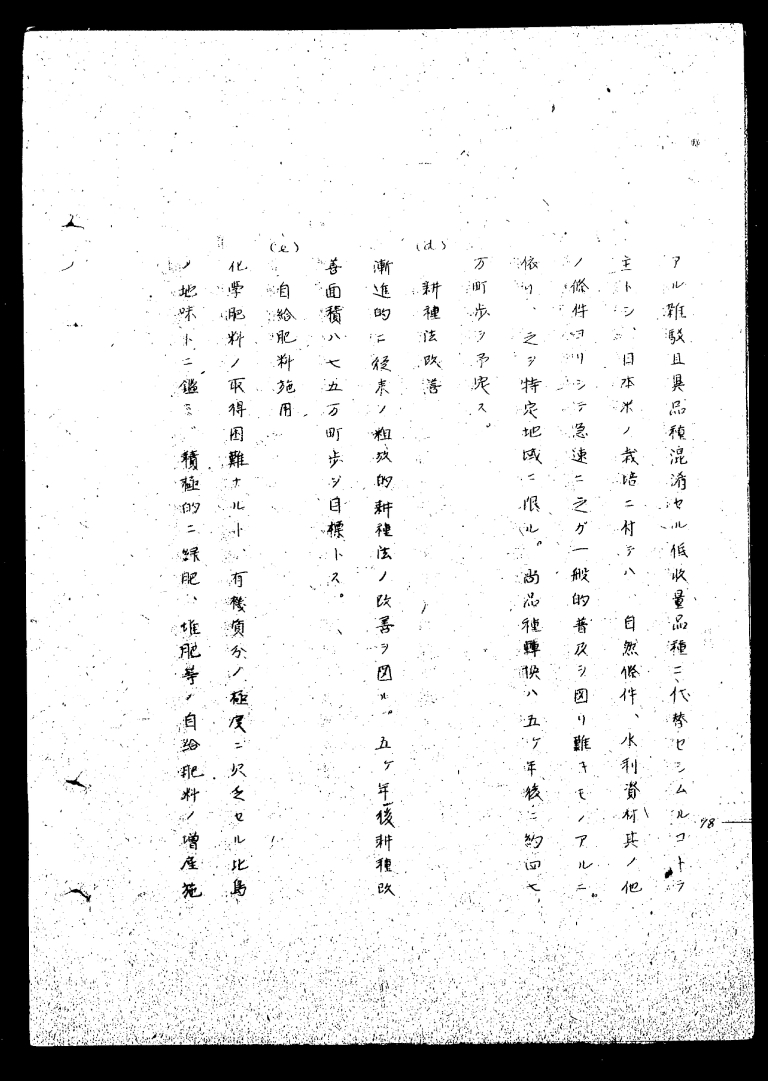 アル雑駁且異品種混淆セル低收量品種ニ代替セシムルコトヲ
主トシ、日本米ノ栽培ニ付テハ、自然條件、水利資材其ノ他
ノ條件ヨリシテ急速ニ之ガ一般的普及ヲ図リ難キモノアルニ
依リ、之ヲ特定地域ニ限ル。尚品種轉換ハ五ケ年後ニ約四七
万町歩ヲ予定ス。
(d) 耕種法改善
漸進的ニ従来ノ粗放的耕種法ノ改善ヲ図ル。五ケ年後耕種改
善面積ハ七五万町歩ヲ目標トス。
(e) 自給肥料施用
化学肥料ノ取得困難ナルト、有機質分ノ極度ニ欠乏セル比島
ノ地味トニ鑑ミ、積極的ニ緑肥、堆肥等ノ自給肥料ノ増産施
98